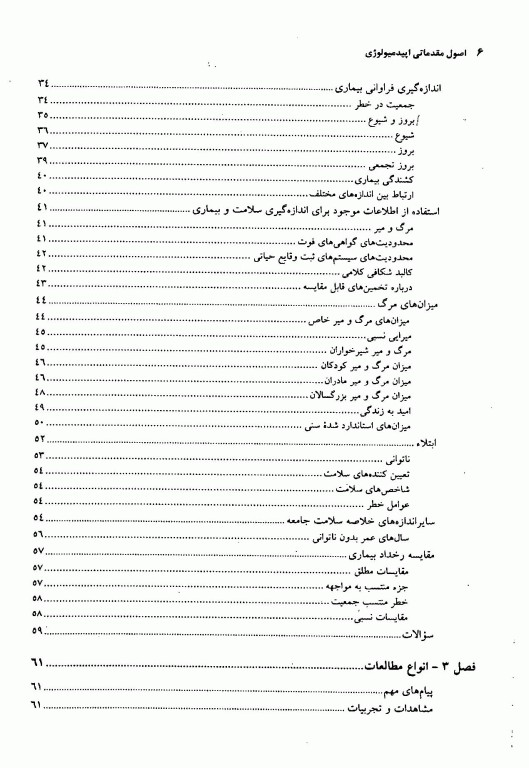 ۶ اصول مقدماتی اپیدمیولوژی
اندازه‌گیری فراوانی بیماری ۳۴
جمعیت در خطر ۳۴
بروز و شیوع ۳۵
شیوع ۳۶
بروز ۳۷
بروز تجمعی ۳۹
کشندگی بیماری ۴۰
ارتباط بین اندازه‌های مختلف ۴۰
استفاده از اطلاعات موجود برای اندازه‌گیری سلامت و بیماری ۴۱
مرگ و میر ۴۱
محدودیت‌های گواهی‌های فوت ۴۱
محدودیت‌های سیستم‌های ثبت وقایع حیاتی ۴۲
کالبد شکافی کلامی ۴۲
درباره تخمین‌های قابل مقایسه ۴۳
میزان‌های مرگ ۴۴
میزان‌های مرگ و میر خاص ۴۴
میرایی نسبی ۴۵
مرگ و میر شیرخواران ۴۵
میزان مرگ و میر کودکان ۴۶
میزان مرگ و میر مادران ۴۶
میزان مرگ و میر بزرگسالان ۴۸
امید به زندگی ۴۹
میزان‌های استاندارد شدهٔ سنی ۵۰
ابتلاء ۵۲
ناتوانی ۵۳
تعیین کننده‌های سلامت ۵۴
شاخص‌های سلامت ۵۴
عوامل خطر ۵۴
سایراندازه‌های خلاصه سلامت جامعه ۵۴
سال‌های عمر بدون ناتوانی ۵۶
مقایسه رخداد بیماری ۵۷
مقایسات مطلق ۵۷
جزء منتسب به مواجهه ۵۷
خطر منتسب جمعیت ۵۸
مقایسات نسبی ۵۸
سؤالات ۵۹
فصل ۳ - انواع مطالعات ۶۱
پیام‌های مهم ۶۱
مشاهدات و تجربیات ۶۱